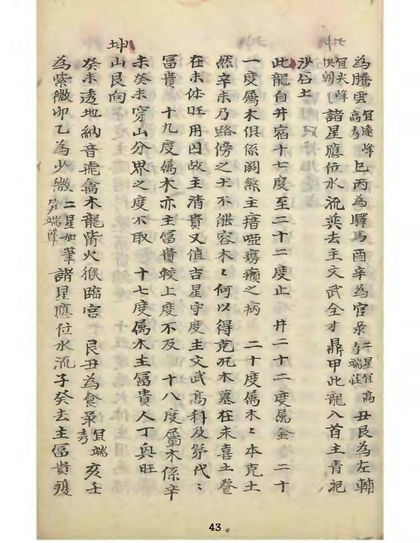 為騰雲宜遠峰高秀巳丙為驛馬酉辛為官祿二星宜高丑艮為左輔
宜尖峰拱朝已上諸星應位水流巽去主文武全才鼎甲此龍入首主青祀
沙居上
此龍自井宿十七度至二十二度止 井二十二度属金 二十
一度属木俱係關煞主瘖啞癆癩之病 二十度属木木本克土
然辛未乃路傍之土不能容木木何以得克况木墓在未喜土養
在未体旺用囚故主清貴又值吉星守度主文武高科及第代代
富貴 十九度属木亦主富貴較上度不及 十八度属木係辛
未癸未穿山分界之度不取 十七度属木主富貴人丁興旺
坤山艮向
癸未透地納音虎禽木龍觜火猴臨宮 艮丑為食祿宜端秀亥壬
為紫微卯乙為少微二星如筆宜端峰諸星應位水流子癸去主富貴複
43